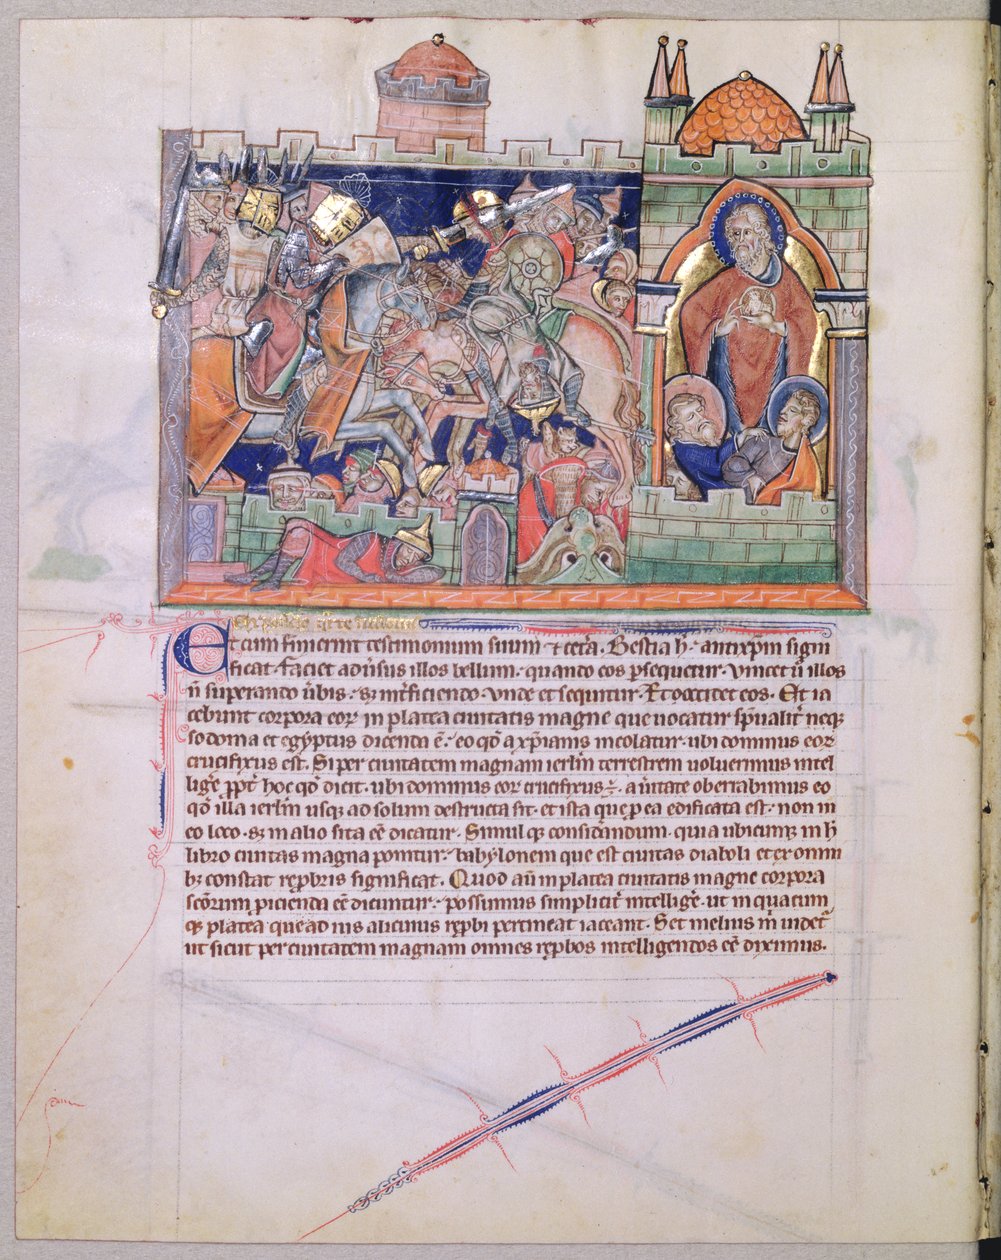 Et cum finierint testimonium suum · ⁊ cetᷓa. Bestia h̅ · antixp̅m sign
ficat · faciet aduͥsus illos bellum · quando eos ꝑsequetur · Vincet ỹ illos
n̅ superando uͥbis · sꝫ int̾ficiendo · Vnde et sequitur · Et occidet eos · Et ia
cebunt corpora eoꝝ in platea ciuitatis magne que uocatur sp̅ualit̾
sodoma et egyptus dicenda e̅ · eo qđ a xp̅ianis incolatur · ubi dominus eoꝝ
crucifixus est. Si per ciuitatem magnam ierlm̅ terrestrem uoluerimus intel
lig̾e ꝓpt̾ hoc qđ dicit · ubi dominus eoꝝ crucifixus · a uͥitate oberrabimus eo
qđ illa ierlm̅ usꝗ ad solum destructa sit · et ista que p̱ ea edificata est · non in
eo loco · sꝫ in alio sita ee̅ dicatur · Simul ꝗ considandum · quia ubicumꝗ in h̅
libro ciuitas magna ponitur · babylonem que est ciuitas diaboli et ex omni
bꝫ constat rep̱bris significat. Quod au̅ in platea ciuitatis magne corpora
sco̅rum ꝓicienda ee̅ dicuntur · possumus simplicit̾ intellig̾e · ut in quacum
ꝗ platea que ad ius alicuius rep̱bi pertineat iaceant. Set melius m̅ uidet̾
ut sicut per ciuitatem magnam omnes rep̱bos intelligendos ee̅ diximus.